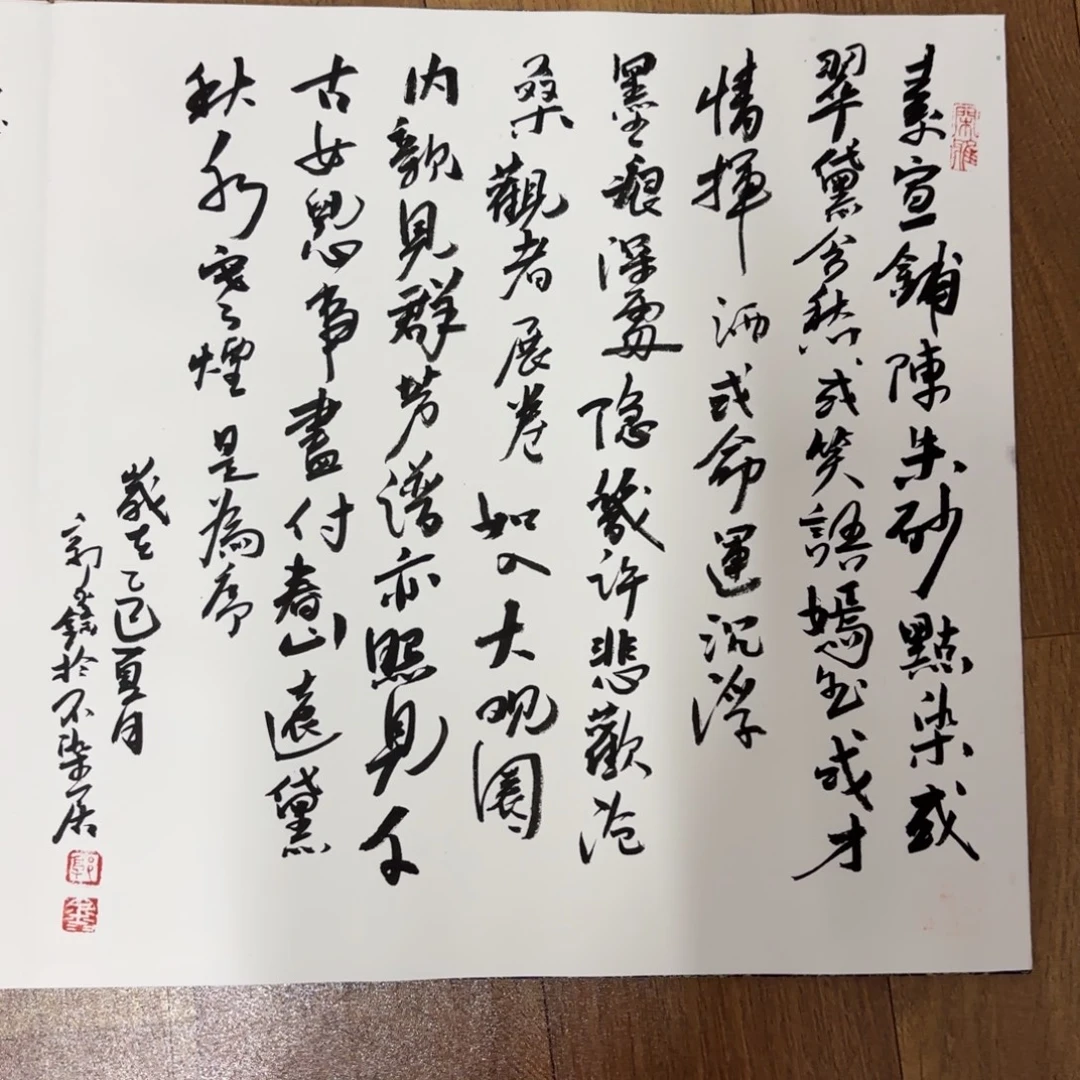 素宣鋪陳朱砂點染或
翠黛含愁或笑語嫣然或才
情揮洒或命運沉浮
墨痕深處隐幾許悲歡滄
桑觀者展卷如入大观園
内親見群芳譜亦照見千
古女兒心事盡付春山遠黛
秋水寒煙是為序
歲在乙巳夏月
於不染居